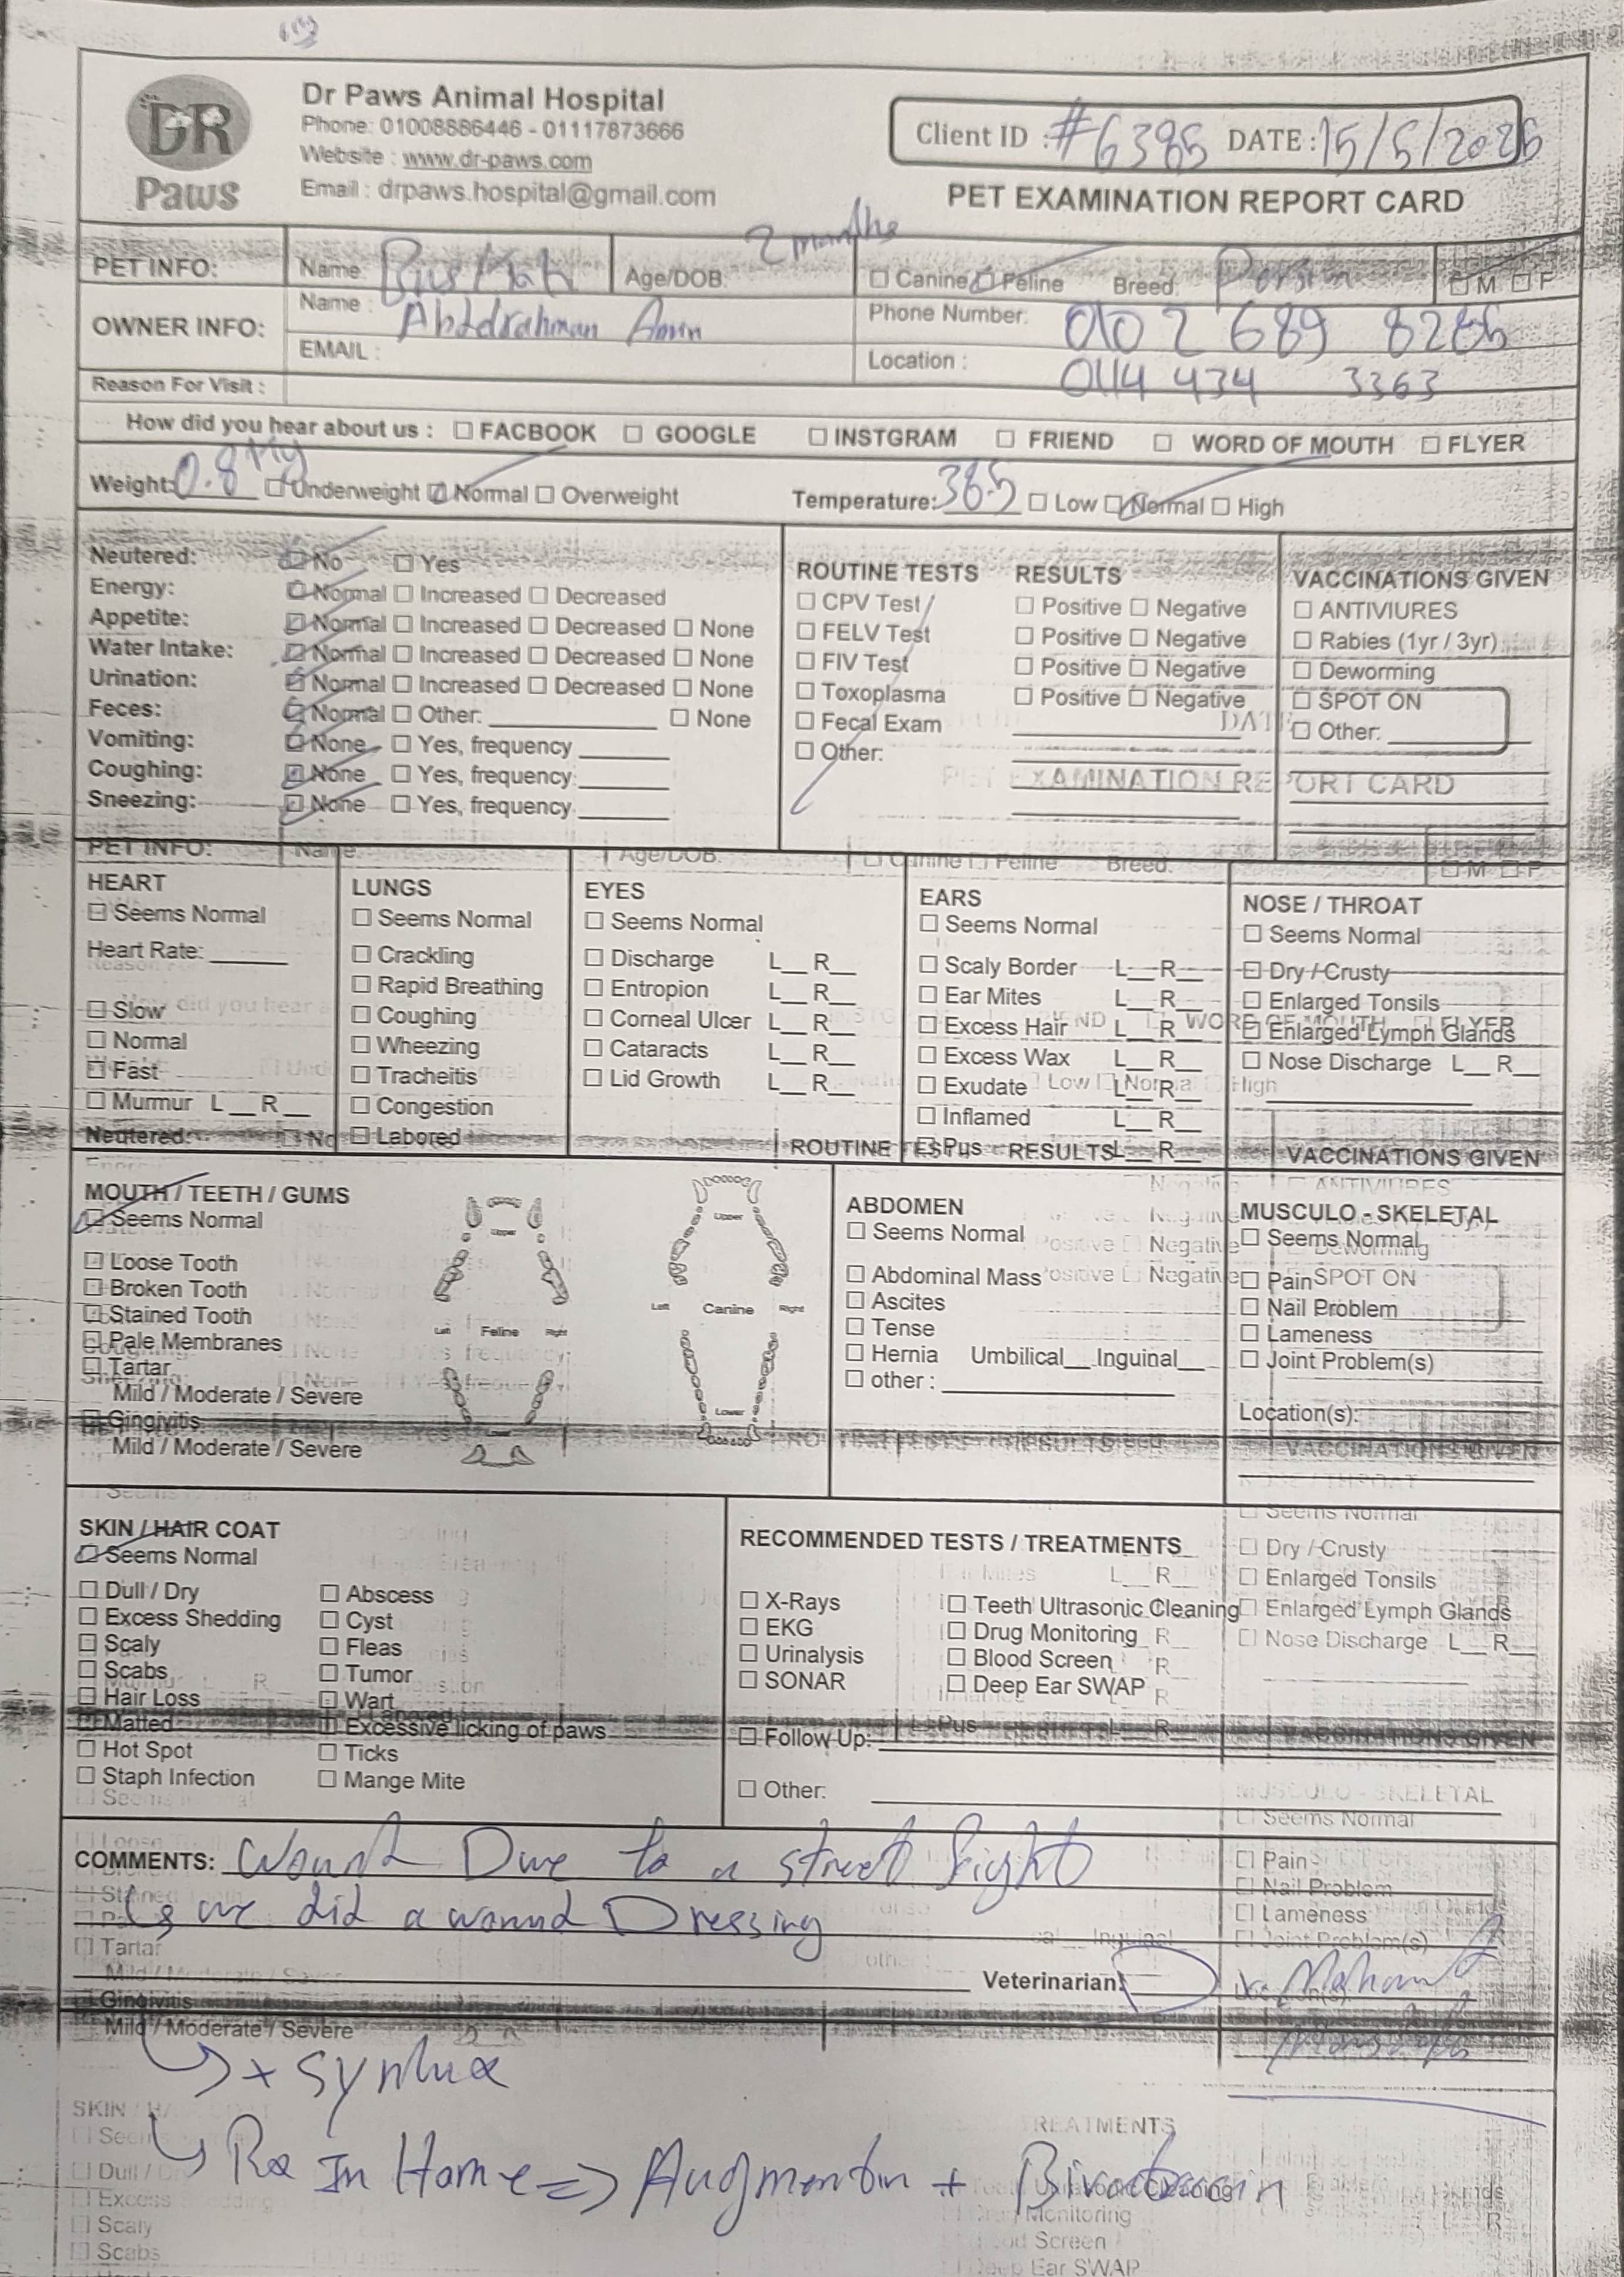 DR
Paws
Dr Paws Animal Hospital
Phone: 01008886446 - 01117873666
Website : www.dr-paws.com
Email : drpaws.hospital@gmail.com
Client ID : #6385 DATE : 15/5/2026
PET EXAMINATION REPORT CARD
PET INFO: Name: Age/DOB: 2 months ☐ Canine ☑ Feline Breed: ☑ M ☐ F
OWNER INFO: Name : Abdelrahman Amin Phone Number: 0102 689 8286
EMAIL : Location : 0114 434 3363
Reason For Visit :
How did you hear about us : ☐ FACBOOK ☐ GOOGLE ☐ INSTGRAM ☐ FRIEND ☐ WORD OF MOUTH ☐ FLYER
Weight: 0.8 Kg ☐ Underweight ☑ Normal ☐ Overweight Temperature: 38.5 ☐ Low ☑ Normal ☐ High
Neutered: ☑ No ☐ Yes
Energy: ☑ Normal ☐ Increased ☐ Decreased
Appetite: ☑ Normal ☐ Increased ☐ Decreased ☐ None
Water Intake: ☑ Normal ☐ Increased ☐ Decreased ☐ None
Urination: ☑ Normal ☐ Increased ☐ Decreased ☐ None
Feces: ☑ Normal ☐ Other: ☐ None
Vomiting: ☑ None ☐ Yes, frequency
Coughing: ☑ None ☐ Yes, frequency:
Sneezing: ☑ None ☐ Yes, frequency:
ROUTINE TESTS RESULTS
☐ CPV Test ☐ Positive ☐ Negative
☐ FELV Test ☐ Positive ☐ Negative
☐ FIV Test ☐ Positive ☐ Negative
☐ Toxoplasma ☐ Positive ☐ Negative
☐ Fecal Exam
☐ Other:
VACCINATIONS GIVEN
☐ ANTIVIURES
☐ Rabies (1yr / 3yr)
☐ Deworming
☐ SPOT ON
☐ Other:
HEART
☐ Seems Normal
Heart Rate:
☐ Slow
☐ Normal
☐ Fast
☐ Murmur L__R__
LUNGS
☐ Seems Normal
☐ Crackling
☐ Rapid Breathing
☐ Coughing
☐ Wheezing
☐ Tracheitis
☐ Congestion
☐ Labored
EYES
☐ Seems Normal
☐ Discharge L__R__
☐ Entropion L__R__
☐ Corneal Ulcer L__R__
☐ Cataracts L__R__
☐ Lid Growth L__R__
EARS
☐ Seems Normal
☐ Scaly Border L__R__
☐ Ear Mites L__R__
☐ Excess Hair L__R__
☐ Excess Wax L__R__
☐ Exudate L__R__
☐ Inflamed L__R__
☐ Pus L__R__
NOSE / THROAT
☐ Seems Normal
☐ Dry / Crusty
☐ Enlarged Tonsils
☐ Enlarged Lymph Glands
☐ Nose Discharge L__R__
MOUTH / TEETH / GUMS
☑ Seems Normal
☐ Loose Tooth
☐ Broken Tooth
☐ Stained Tooth
☐ Pale Membranes
☐ Tartar
Mild / Moderate / Severe
☐ Gingivitis
Mild / Moderate / Severe
Upper
Left Feline Right
Lower
Upper
Left Canine Right
Lower
ABDOMEN
☐ Seems Normal
☐ Abdominal Mass
☐ Ascites
☐ Tense
☐ Hernia Umbilical__Inguinal__
☐ other :
MUSCULO - SKELETAL
☐ Seems Normal
☐ Pain
☐ Nail Problem
☐ Lameness
☐ Joint Problem(s)
Location(s):
SKIN / HAIR COAT
☑ Seems Normal
☐ Dull / Dry ☐ Abscess
☐ Excess Shedding ☐ Cyst
☐ Scaly ☐ Fleas
☐ Scabs ☐ Tumor
☐ Hair Loss ☐ Wart
☐ Matted ☐ Excessive licking of paws
☐ Hot Spot ☐ Ticks
☐ Staph Infection ☐ Mange Mite
RECOMMENDED TESTS / TREATMENTS
☐ X-Rays ☐ Teeth Ultrasonic Cleaning
☐ EKG ☐ Drug Monitoring
☐ Urinalysis ☐ Blood Screen
☐ SONAR ☐ Deep Ear SWAP
☐ Follow Up:
☐ Other:
COMMENTS: Wound Due to a street fight
↳ we did a wound Dressing
Veterinarian: Dr. Mohamed
↳ + synulox
↳ Rx In Home => Augmentin +